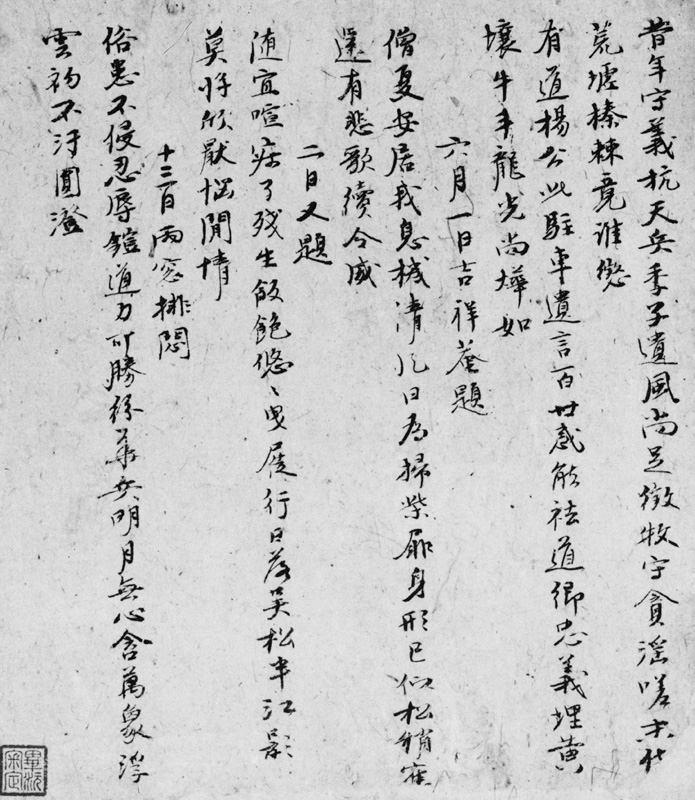 昔年守義抗天兵季子遺風尚足徵牧守貪淫嗟末代
荒墟榛棘竟誰懲
有道楊公此駐車遺言百世感能祛道卿忠義埋黃
壤牛斗龍光尚燁如
六月一日吉祥菴題
僧夏安居我息機清風日為掃柴扉身形已似松
還有悲歌續令威
二日又題
随宜喧寂了殘生飯飽悠々曳屐行日落吳松半江影
莫將欣厭惱閒情
十三日雨窓排悶
俗患不侵忍辱鎧道力可勝紛華兵明月無心含萬象浮
雲初不汙圓澄
畢沅審定